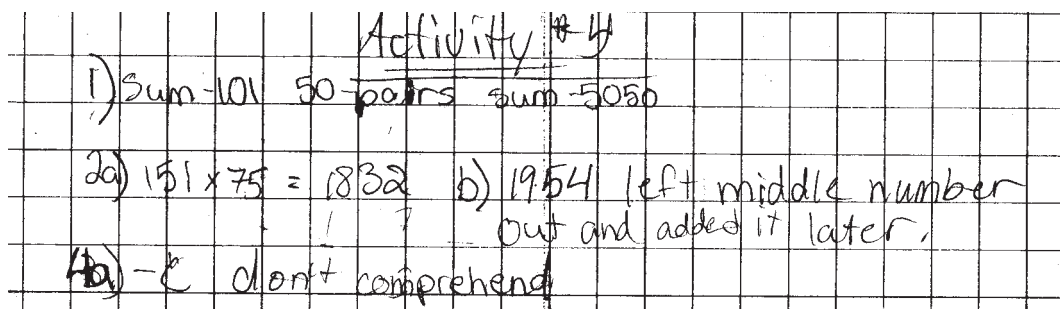 Activity #4
1) Sum-101 50-pairs sum-5050
2a) 151 x 75 = 1832 b) 1954 left middle number
out and added it later.
4a) - c don't comprehend